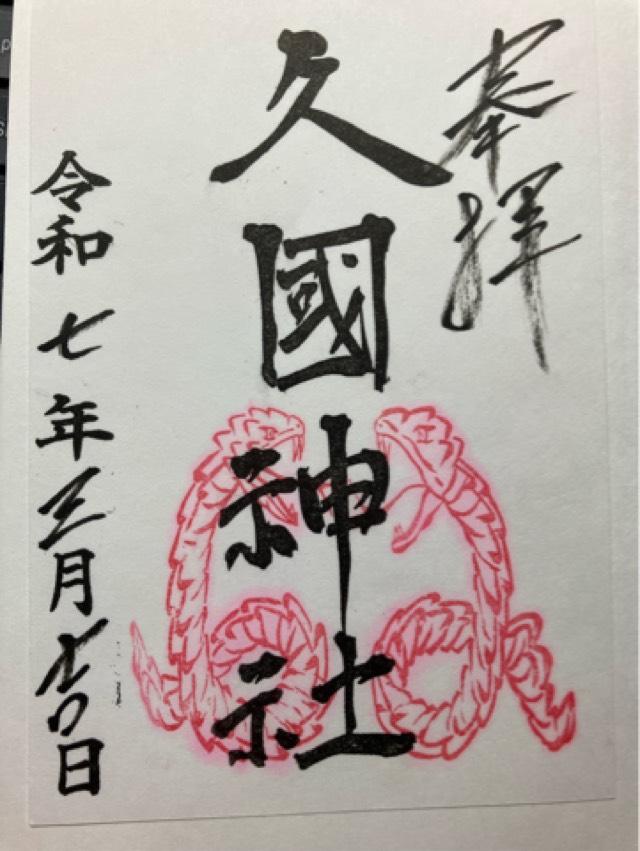 奉拝
久國神社
令和七年三月日